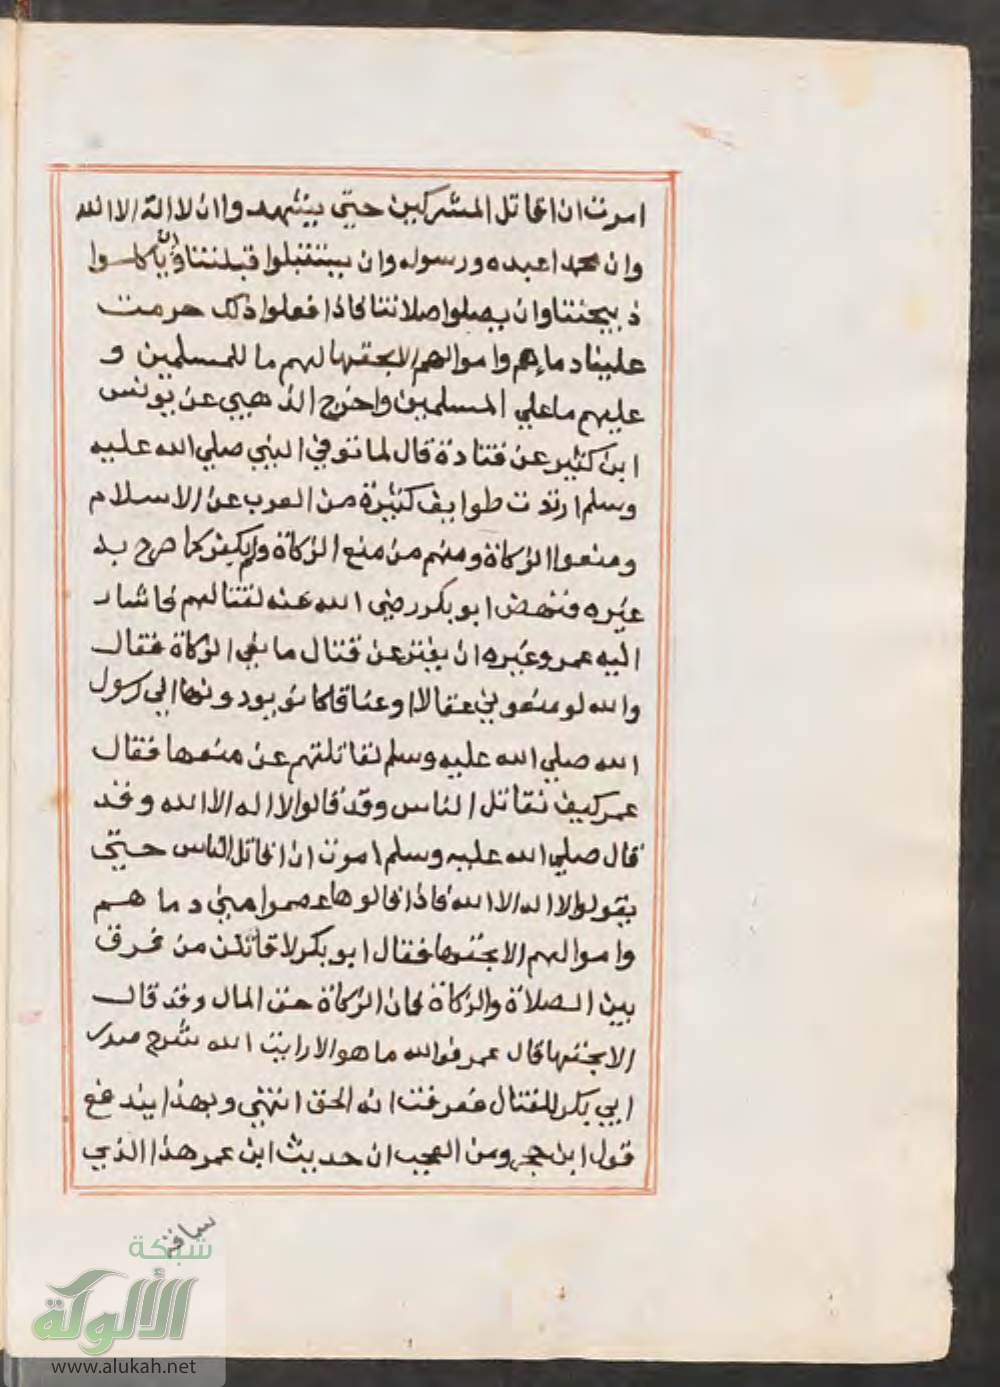 امرت ان اقاتل المشركين حتى يشهدوا ان لا اله الا الله
وان محمدا عبده ورسوله وان يستقبلوا قبلتنا وان ياكلوا
ذبيحتنا وان يصلوا صلاتنا فاذا فعلوا ذلك حرمت
علينا دماءهم واموالهم الا بحقها لهم ما للمسلمين و
عليهم ما علي المسلمين واخرج الذهبي عن يونس
ابن كثير عن قتادة قال لما توفي النبي صلي الله عليه
وسلم ارتدت طوايف كثيرة من العرب عن الاسلام
ومنعوا الزكاة ومنهم من منع الزكاة ولم يكفر كما صرح به
غيره فنهض ابو بكر رضي الله عنه لقتالهم فاشار
اليه عمر وغيره ان يفتر عن قتال مانعي الزكاة فقال
والله لو منعوني عقالا او عناقا كانو يودونها الي رسول
الله صلي الله عليه وسلم لقاتلتهم عن منعها فقال
عمر كيف نقاتل الناس وقد قالوا لا اله الا الله وقد
قال صلي الله عليه وسلم امرت ان اقاتل الناس حتي
يقولوا لا اله الا الله فاذا قالوها عصموا مني دماهم
واموالهم الا بحقها فقال ابو بكر لاقاتلن من فرق
بين الصلاة والزكاة فان الزكاة حق المال وقد قال
الا بحقها قال عمر فوالله ما هو الا رايت الله شرح صدر
ابي بكر للقتال فعرفت انه الحق انتهي وبهذا يندفع
قول ابن حجر ومن العجب ان حديث ابن عمر هذا الذي
شبكة
الألوكة
www.alukah.net